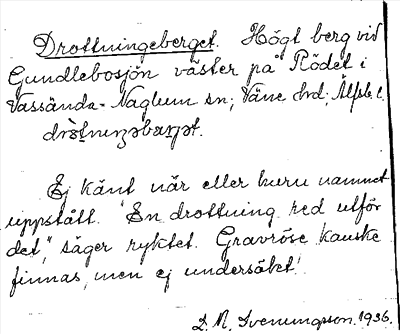 Drottningeberget. Högt berg vid
Gundlebosjön väster på Rödet i
Vassända-Naglum sn; Väne hrd; Älfsb. l.
Ej känt när eller huru namnet
uppstått. "En drottning red utför
det", säger ryktet. Gravröse kanske
finnas, men ej undersökt!
D. A. Svenungsson. 1936.